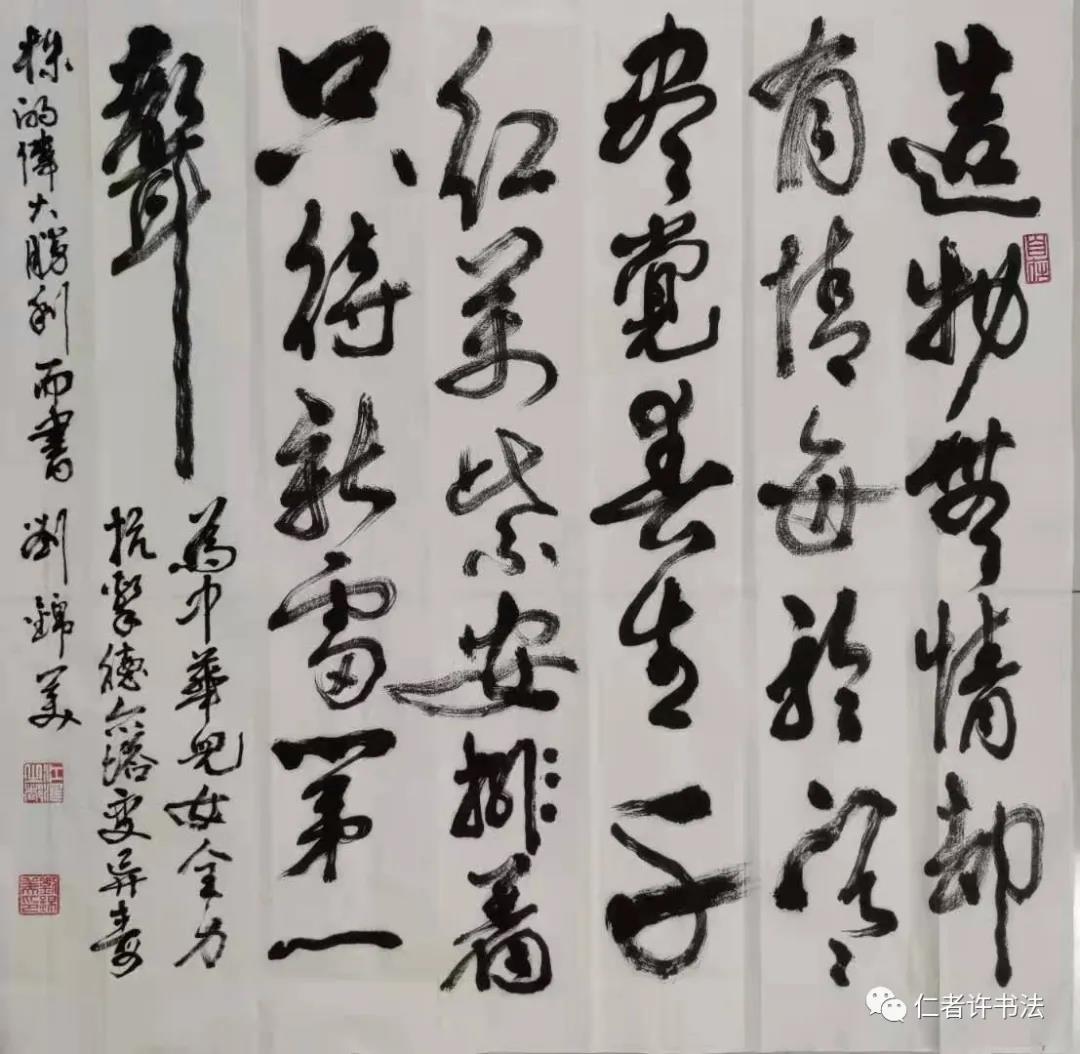 造物無情却
有情每於寒
尽覺春生千
红萬紫安排着
只待新雷第一
聲
為中華兒女全力
抗擊德尔塔变异毒
株的偉大勝利而書 劉錦美
自信
仁者许书法